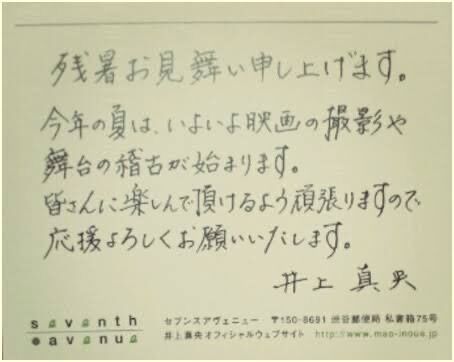 残暑お見舞い申し上げます。
今年の夏は、いよいよ映画の撮影や
舞台の稽古が始まります。
皆さんに楽しんで頂けるよう頑張りますので
応援よろしくお願いいたします。
井上真央
seventh
avenue
セブンスアヴェニュー 〒150-8691 渋谷郵便局 私書箱75号
井上真央オフィシャルウェブサイト http://www.mao-inoue.jp